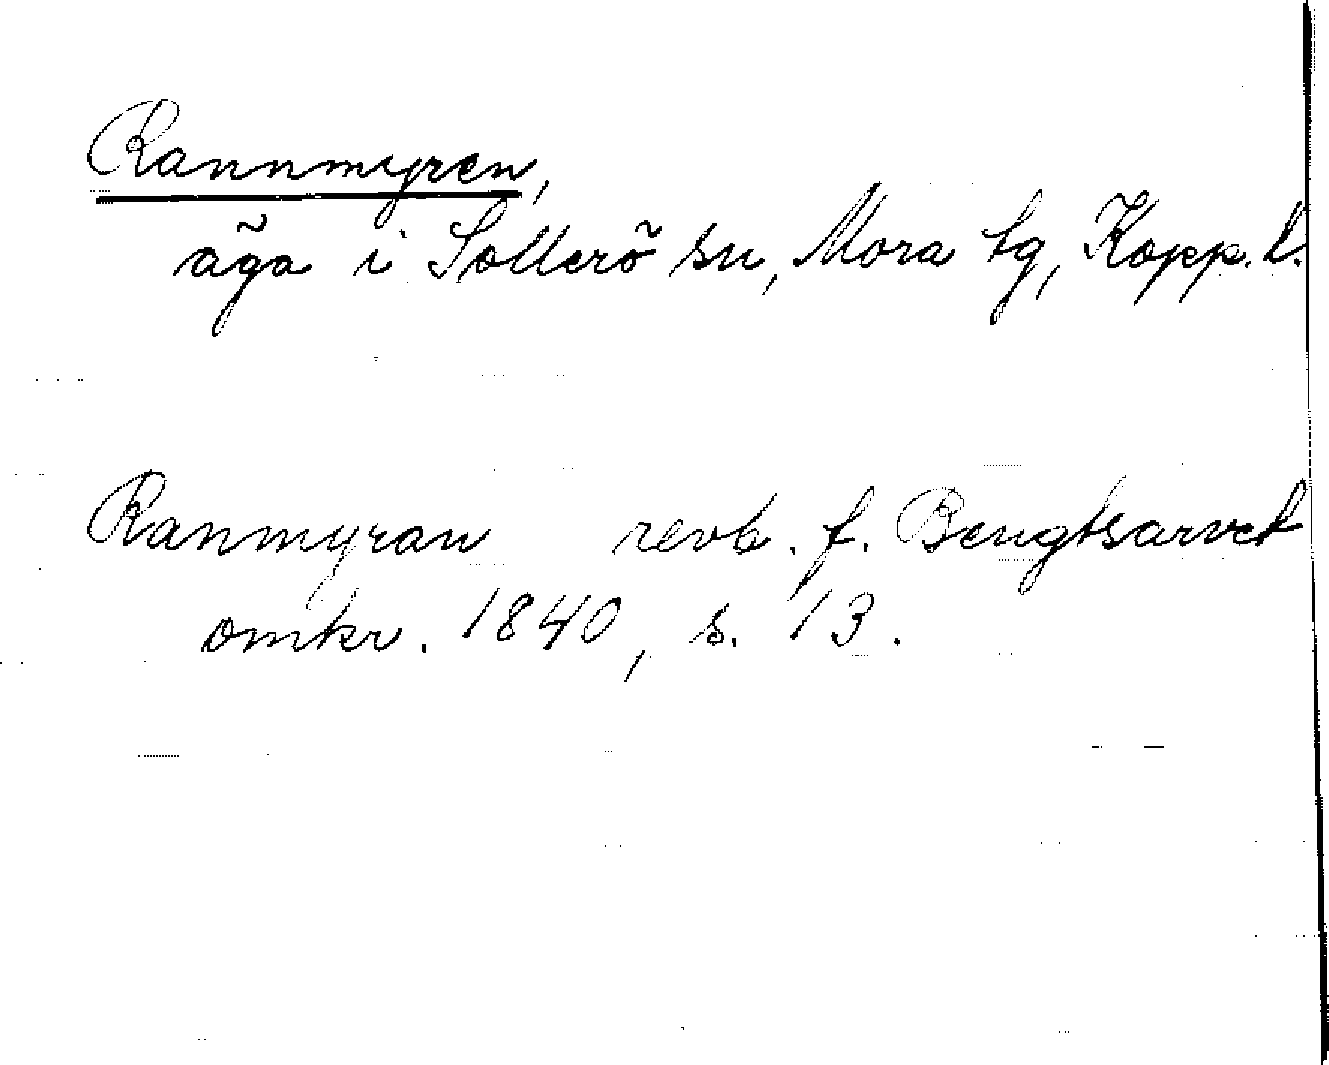 Rannmyren,
äga i Sollerö sn, Mora tg, Kopp. l.
Ranmyran revb. f. Bengtsarvet
omkr. 1840, s. 13.